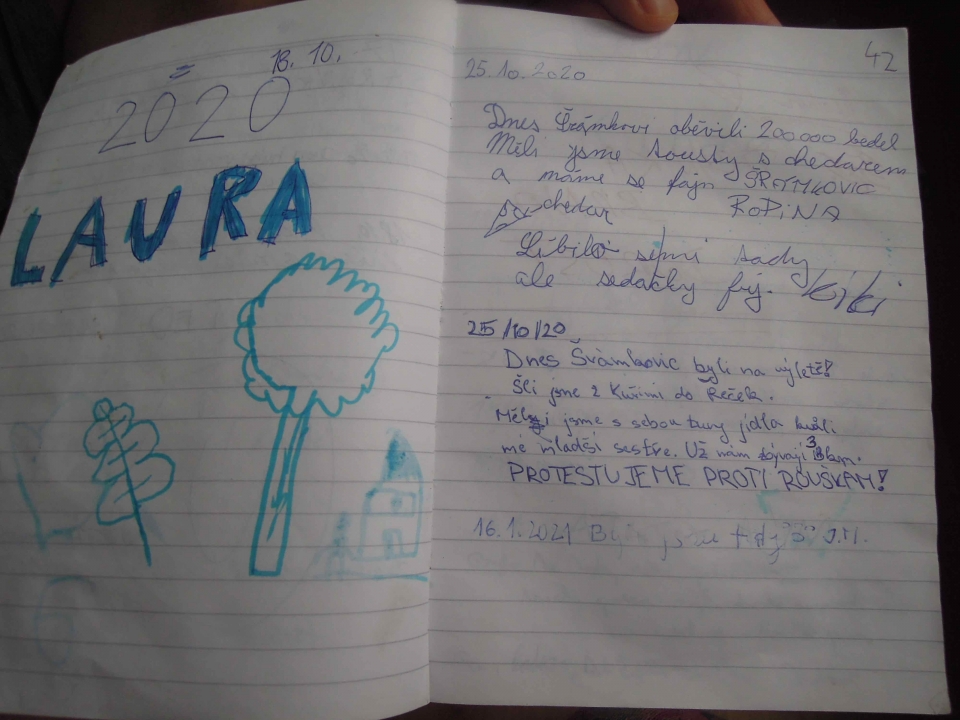 18. 10.
2020
LAURA
42
25.10.2020
Dnes Šrámkovi oběvili 200 000 bedel
Měli jsme tousty s chedarem
a máme se fajn ŠRÁMKOVIC
RODINA
chedar
Líbilo se mi tady
ale sedačky fuj. Kiki
25/10/20
Dnes Švámkovic byli na výletě!
Šli jsme z Kuřimi do Řeček.
Měli jsme s sebou tuny jídla kvůli
mé mladší sestře. Už nám zbývají 3 km.
PROTESTUJEME PROTI ROUŠKÁM!
16.1.2021 jsme tady